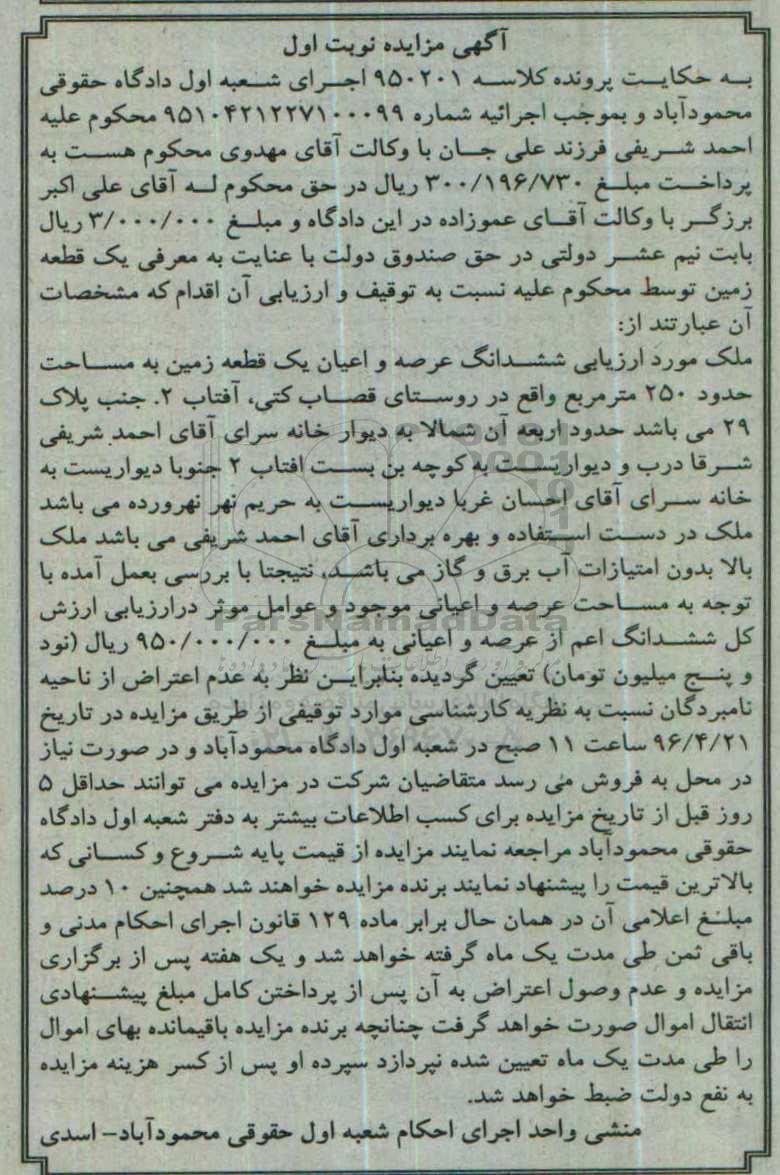 آگهی مزایده نوبت اول
به حکایت پرونده کلاسه ۹۵۰۲۰۱ اجرای شعبه اول دادگاه حقوقی
محمودآباد و بموجب اجرائیه شماره ۹۵۱۰۴۲۱۲۲۷۱۰۰۰۹۹ محکوم علیه
احمد شریفی فرزند علی جان با وکالت آقای مهدوی محکوم هست به
پرداخت مبلغ ۳۰۰/۱۹۶/۷۳۰ ریال در حق محکوم له آقای علی اکبر
برزگر با وکالت آقای عموزاده در این دادگاه و مبلغ ۳/۰۰۰/۰۰۰ ریال
بابت نیم عشر دولتی در حق صندوق دولت با عنایت به معرفی یک قطعه
زمین توسط محکوم علیه نسبت به توقیف و ارزیابی آن اقدام که مشخصات
آن عبارتند از:
ملک مورد ارزیابی ششدانگ عرصه و اعیان یک قطعه زمین به مساحت
حدود ۲۵۰ مترمربع واقع در روستای قصاب کتی، آفتاب ۲. جنب پلاک
۲۹ می باشد حدود اربعه آن شمالا به دیوار خانه سرای آقای احمد شریفی
شرقا درب و دیواریست به کوچه بن بست افتاب ۲ جنوبا دیواریست به
خانه سرای آقای احسان غربا دیواریست به حریم نهر نهرورده می باشد
ملک در دست استفاده و بهره برداری آقای احمد شریفی می باشد ملک
بالا بدون امتیازات آب برق و گاز می باشد، نتیجتا با بررسی بعمل آمده با
توجه به مساحت عرصه و اعیانی موجود و عوامل موثر درارزیابی ارزش
ParsNamadData
کل ششدانگ اعم از عرصه و اعیانی به مبلغ ۹۵۰/۰۰۰/۰۰۰ ریال (نود
و پنج میلیون تومان) تعیین گردیده بنابراین نظر به عدم اعتراض از ناحیه
نامبردگان نسبت به نظریه کارشناسی موارد توقیفی از طریق مزایده در تاریخ
۹۶/۴/۲۱ ساعت ۱۱ صبح در شعبه اول دادگاه محمودآباد و در صورت نیاز
در محل به فروش می رسد متقاضیان شرکت در مزایده می توانند حداقل ۵
روز قبل از تاریخ مزایده برای کسب اطلاعات بیشتر به دفتر شعبه اول دادگاه
حقوقی محمودآباد مراجعه نمایند مزایده از قیمت پایه شروع و کسانی که
بالاترین قیمت را پیشنهاد نمایند برنده مزایده خواهند شد همچنین ۱۰ درصد
مبلغ اعلامی آن در همان حال برابر ماده ۱۲۹ قانون اجرای احکام مدنی و
باقی ثمن طی مدت یک ماه گرفته خواهد شد و یک هفته پس از برگزاری
مزایده و عدم وصول اعتراض به آن پس از پرداختن کامل مبلغ پیشنهادی
انتقال اموال صورت خواهد گرفت چنانچه برنده مزایده باقیمانده بهای اموال
را طی مدت یک ماه تعیین شده نپردازد سپرده او پس از کسر هزینه مزایده
به نفع دولت ضبط خواهد شد.
منشی واحد اجرای احکام شعبه اول حقوقی محمودآباد- اسدی